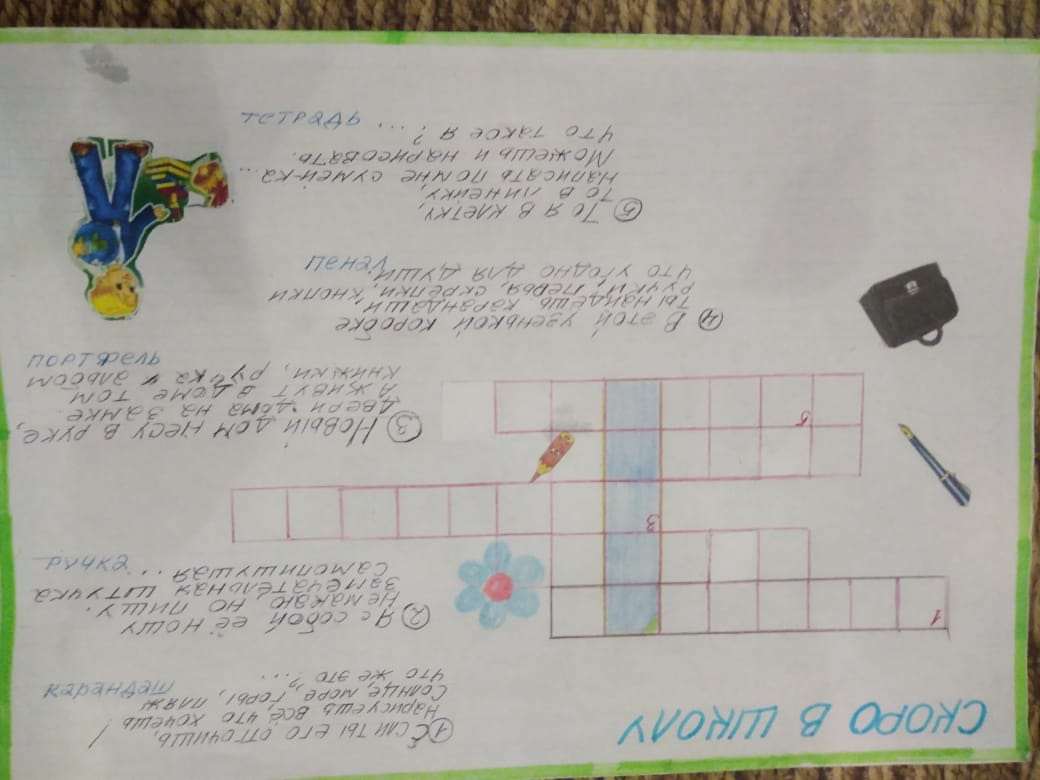 СКОРО В ШКОЛУ
① Если ты его отточишь,
Нарисуешь всё, что хочешь!
Солнце, море, горы, пляж
что же это?...
карандаш
② Я с собой её ношу
Не макаю, но пишу.
Замечательная штучка
самопишущая ... ручка
③ Новый дом несу в руке,
двери дома на замке.
А живут в доме том
книжки, ручка и альбом
портфель
④ В этой узенькой коробке
ты найдёшь карандаши
ручки, перья, скрепки, кнопки
что угодно для души.
пенал
⑤ То я в клетку,
то в линейку,
написать по мне сумей-ка...
Можешь и нарисовать.
что такое я? ...
тетрадь
1
3
5